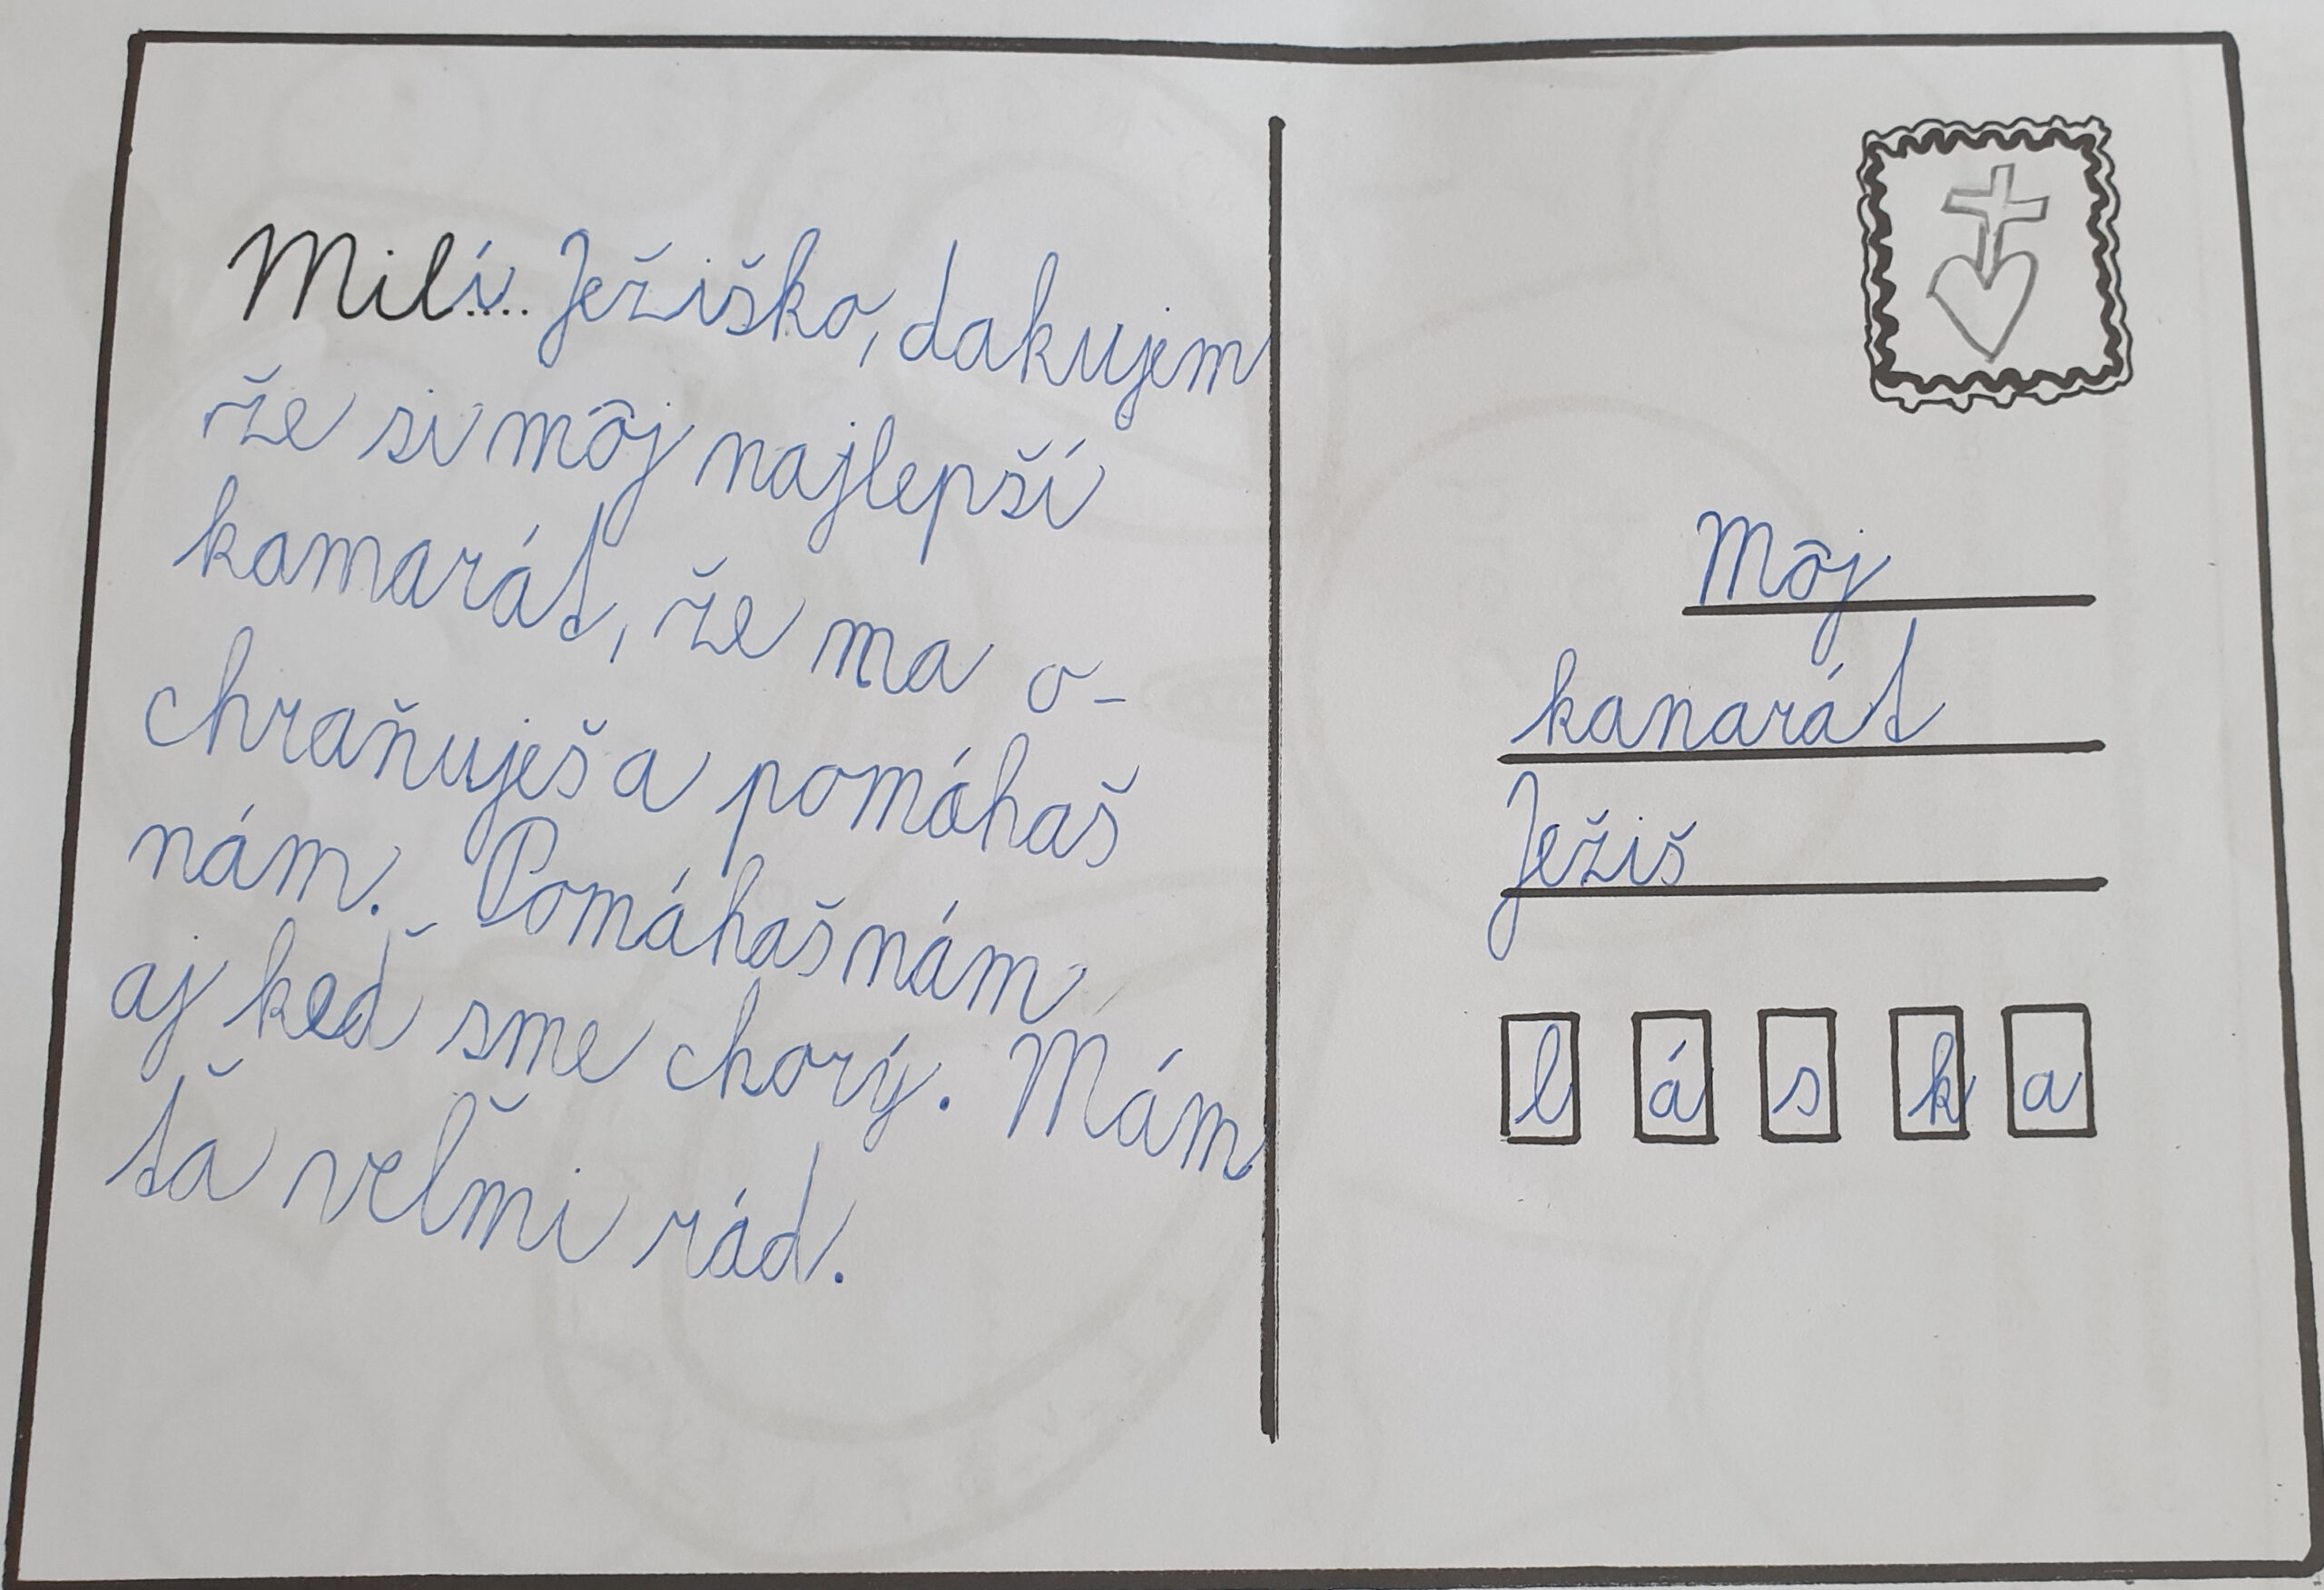 Milí.... Ježiško, dakujem
že si môj najlepší
kamarát, že ma o-
chraňuješ a pomáhaš
nám. Pomáhaš nám
aj keď sme chorý. Mám
ťa veľmi rád.
Môj
kanarát
Ježiš
láska